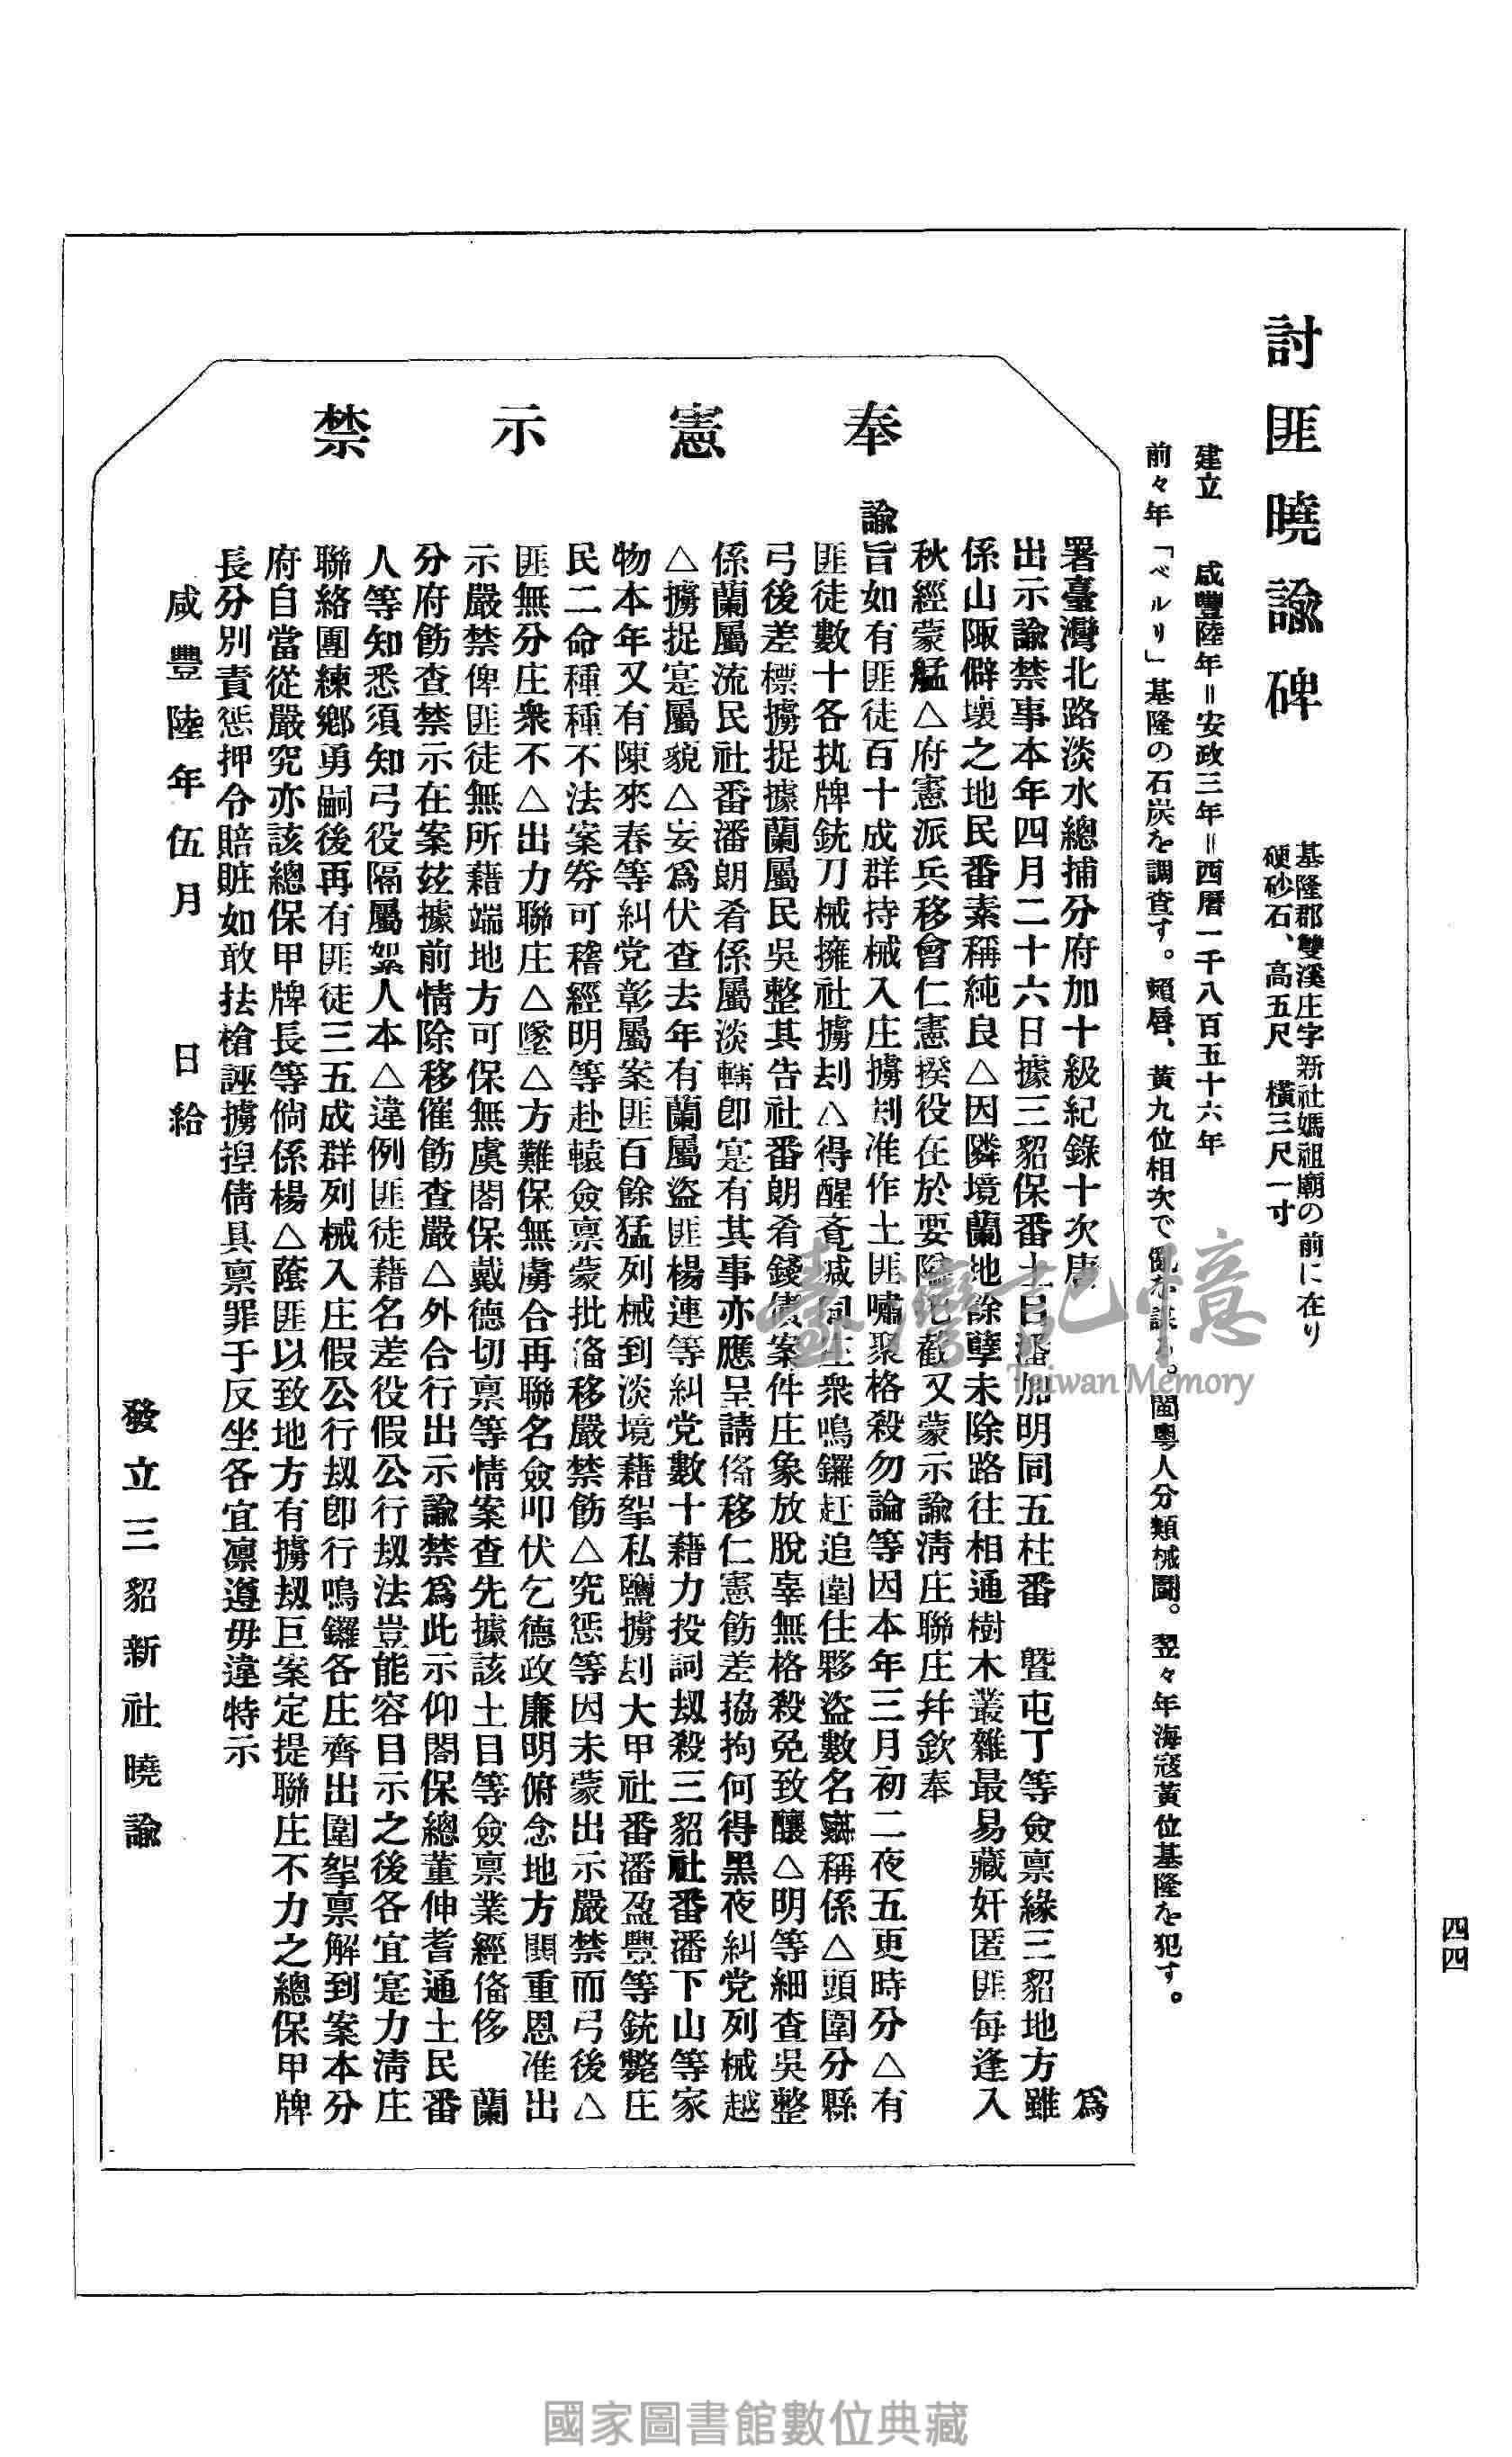 討匪曉諭碑
基隆郡雙溪庄字新社媽祖廟の前に在り
硬砂石、高五尺 橫三尺一寸
建立 咸豐陸年=安政三年=西曆一千八百五十六年
前々年「ペルリ」基隆の石炭を調査す。賴唇、黃九位相次で亂を謀る。閩粵人分類械鬪。翌々年海寇黃位基隆を犯す。
奉憲示禁
署臺灣北路淡水總捕分府加十級紀錄十次唐 爲
出示諭禁事本年四月二十六日據三貂保番土目潘加明同五柱番 曁屯丁等僉禀緣三貂地方雖
係山陬僻壤之地民番素稱純良△因隣境蘭地餘孽未除路往相通樹木叢雜最易藏奸匿匪每逢入
秋經蒙艋△府憲派兵移會仁憲揆役在於要隘屯截又蒙示諭淸庄聯庄幷欽奉
諭旨如有匪徒百十成群持械入庄擄刦准作土匪嘯聚格殺勿論等因本年三月初二夜五更時分△有
匪徒數十各执牌銃刀械擁社擄刦△得醒竟喊同庄衆鳴鑼赶追圍住夥盜數名竊稱係△頭圍分縣
弓後差標擄捉據蘭屬民吳整其告社番朗肴錢債案件庄象放脫辜無格殺免致釀△明等細查吳整
係蘭屬流民社番潘朗肴係屬淡轄卽寔有其事亦應呈請俻移仁憲飭差協拘何得黑夜糾党列械越
△擄捉寔屬藐△妄爲伏查去年有蘭屬盜匪楊連等糾党數十藉力投詞刼殺三貂社番潘下山等家
物本年又有陳來春等糾党彰屬案匪百餘猛列械到淡境藉挐私鹽擄刦大甲社番潘盈豐等銃斃庄
民二命種種不法案劵可稽經明等赴轅僉禀蒙批俻移嚴禁飭△究惩等因未蒙出示嚴禁而弓後△
匪無分庄衆不△出力聯庄△墜△方難保無虜合再聯名僉叩伏乞德政廉明俯念地方閞重恩准出
示嚴禁俾匪徒無所藉端地方可保無虞閤保戴德切禀等情案查先據該土目等僉禀業經俻侈 蘭
分府飭查禁示在案玆據前情除移催飭查嚴△外合行出示諭禁爲此示仰閤保總董伸耆通土民番
人等知悉須知弓役隔屬挐人本△違例匪徒藉名差役假公行刼法豈能容目示之後各宜寔力淸庄
聯絡團練鄉勇嗣後再有匪徒三五成群列械入庄假公行刼卽行鳴鑼各庄齊出圍挐禀解到案本分
府自當從嚴究亦該總保甲牌長等倘係楊△蔭匪以致地方有擄刼巨案定提聯庄不力之總保甲牌
長分別責惩押令賠賍如敢抾槍誣擄揑倩具禀罪于反坐各宜凛遵毋違特示
咸豐陸年伍月 日給
發立三貂新社曉諭
四四
臺灣記憶
Taiwan Memory
國家圖書館數位典藏